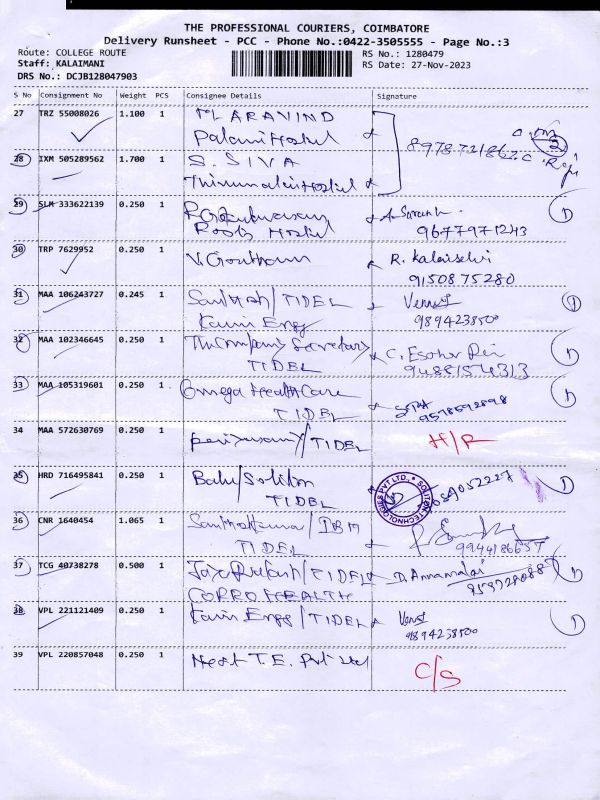 THE PROFESSIONAL COURIERS, COIMBATORE
Delivery Runsheet - PCC - Phone No.:0422-3505555 - Page No.:3
Route: COLLEGE ROUTE RS No.: 1280479
Staff: KALAIMANI RS Date: 27-Nov-2023
DRS No.: DCJB128047903
S No Consignment No Weight PCS Consignee Details Signature
27 TRZ 55008026 1.100 1 ARAVIND
Palani Hostel
8978721862
28 IXM 505289562 1.700 1 S. SIVA
Thirumalai Hostel
29 SLM 333622139 0.250 1
Roots Hostel 9677971243
30 TRP 7629952 0.250 1 V. Goutham R. Kalaiselvi
9150875280
31 MAA 106243727 0.245 1 Santhosh/TIDEL Venus
9894238500
32 MAA 102346645 0.250 1 The Company Secretary
TIDEL 9488154313
33 MAA 105319601 0.250 1 Omega HealthCare
TIDEL 9578592898
34 MAA 572630769 0.250 1 Periyasamy/TIDEL H/R
35 HRD 716495841 0.250 1 Balu/Soliton
TIDEL
SOLITON TECHNOLOGIES PVT LTD.,
36 CNR 1640454 1.065 1 /IBM
TIDEL
37 TCG 40738278 0.500 1 /TIDEL D. Annamalai
CORROHEALTH
38 VPL 221121409 0.250 1 Engg/TIDEL Venus
9894238500
39 VPL 220857048 0.250 1 T.E. Pvt Ltd C/S